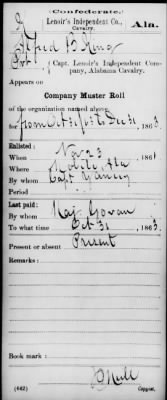 (Confederate.)
Lenoir's Independent Co., Ala.
Cavalry.
Alfred B King
Pvt, Capt. Lenoir's Independent Com-
pany, Alabama Cavalry.
Appears on
Company Muster Roll
of the organization named above,
for from Oct 31/63 to Dec 31, 1863
Enlisted:
When Nov 23, 1861
Where Ala
By whom Capt
Period
Last paid:
By whom Maj. Govan
To what time Oct 31, 1863
Present or absent Present
Remarks:
Book mark:
(642) Copyist.